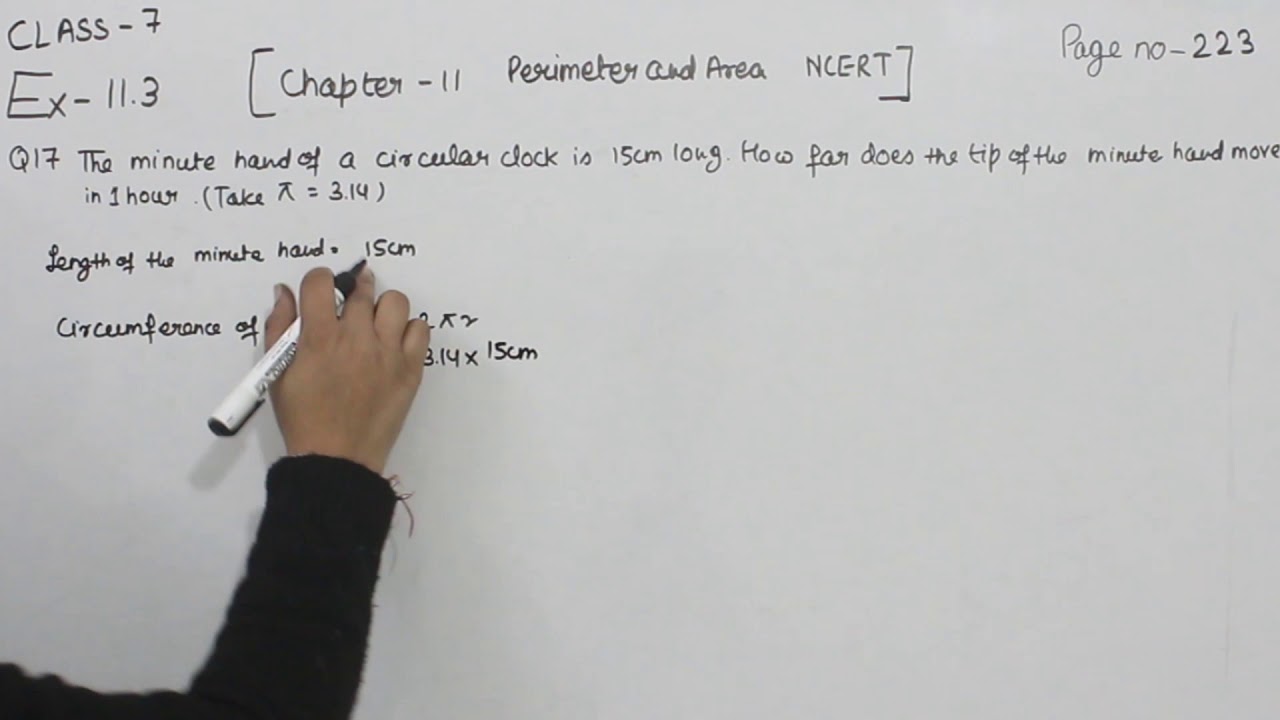 CLASS - 7
Page no - 223
Ex - 11.3
[Chapter - 11 Perimeter and Area NCERT]
Q17 The minute hand of a circular clock is 15cm long. How far does the tip of the minute hand move
in 1 hour. (Take π = 3.14)
Length of the minute hand = 15cm
Circumference of 2πr
3.14 × 15cm